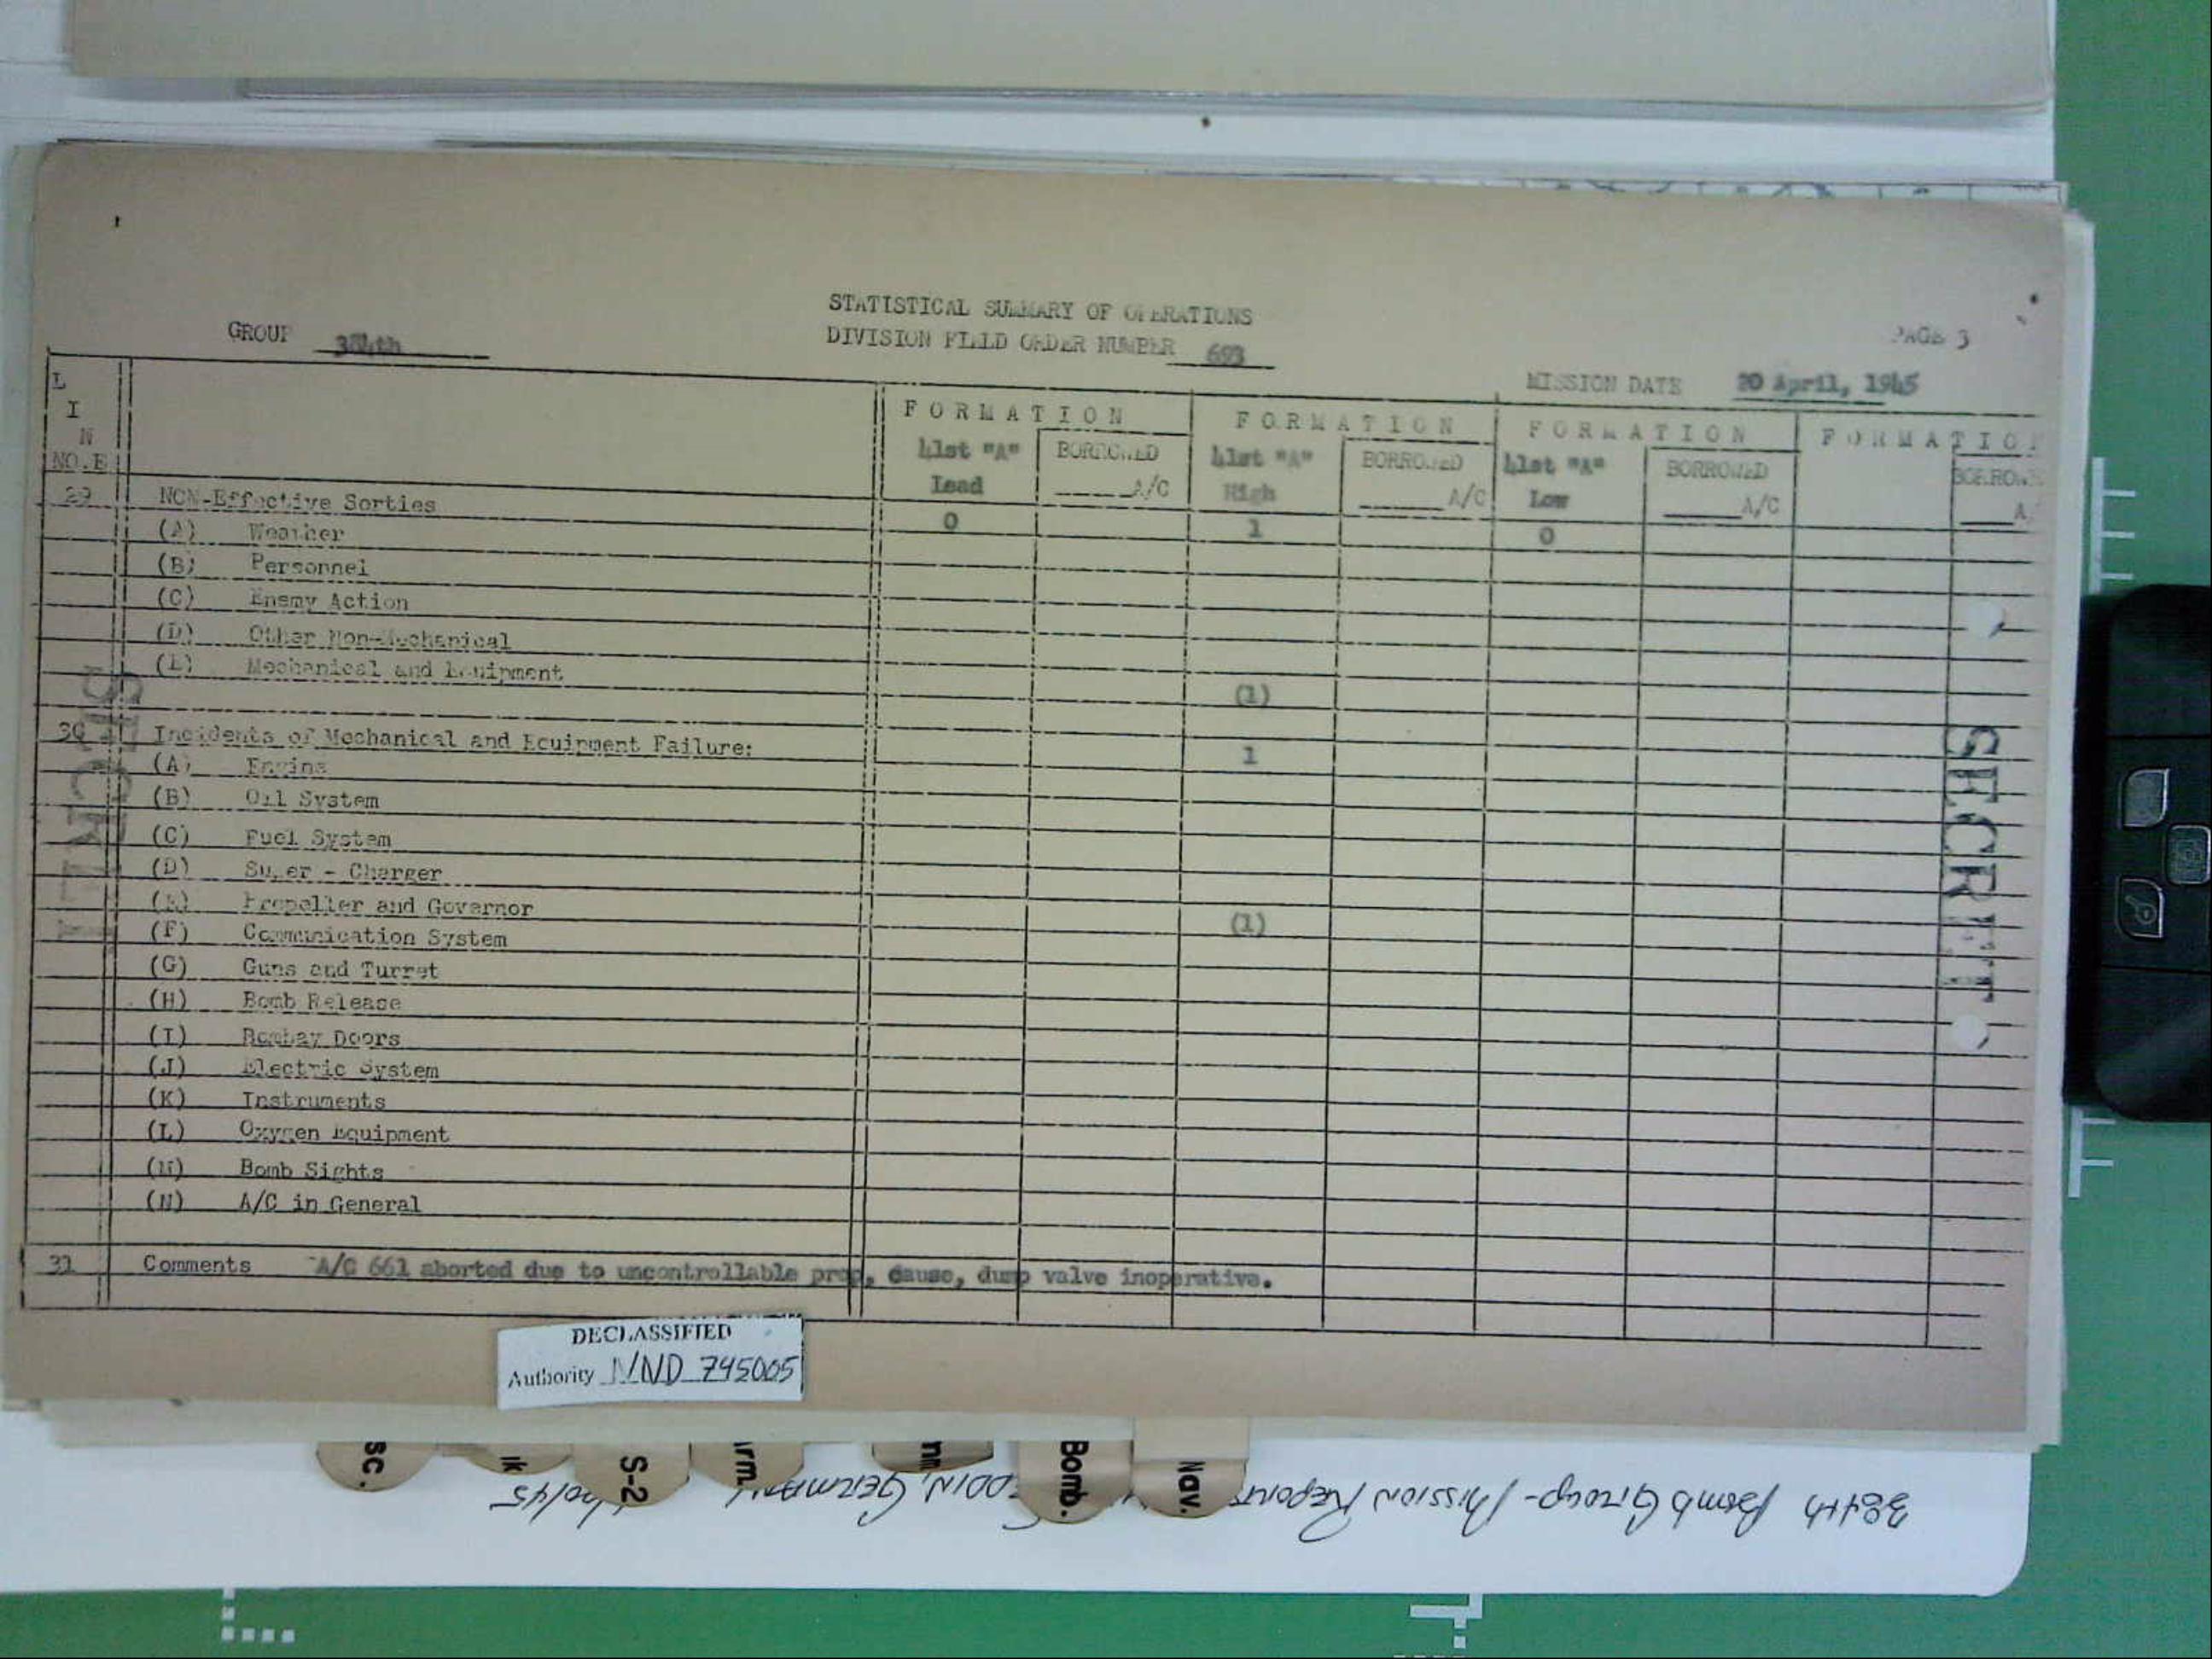 STATISTICAL SUMMARY OF OPERATIONS
GROUP 384th
DIVISION FIELD ORDER NUMBER 693
PAGE 3
MISSION DATE 20 April, 1945
LINE NO.
FORMATION 41st "A" Lead BORROWED A/C
FORMATION 41st "A" High BORROWED A/C
FORMATION 41st "A" Low BORROWED A/C
FORMATION
29 NON-Effective Sorties 0 1 0
(A) Weather
(B) Personnel
(C) Enemy Action
(D) Other Non-Mechanical
(E) Mechanical and Equipment (1)
30 Incidents of Mechanical and Equipment Failure: 1
(A) Engine
(B) Oil System
(C) Fuel System
(D) Super - Charger
(E) Propeller and Governor (1)
(F) Communication System
(G) Guns and Turret
(H) Bomb Release
(I) Bombay Doors
(J) Electric System
(K) Instruments
(L) Oxygen Equipment
(M) Bomb Sights
(N) A/C in General
31 Comments A/C 661 aborted due to uncontrollable prop, cause, dump valve inoperative.
SECRET
SECRET
DECLASSIFIED
Authority NND 745005
sc.
S-2
rm.
Bomb.
Nav.
384th Bomb Group - Mission Report
GERMANY